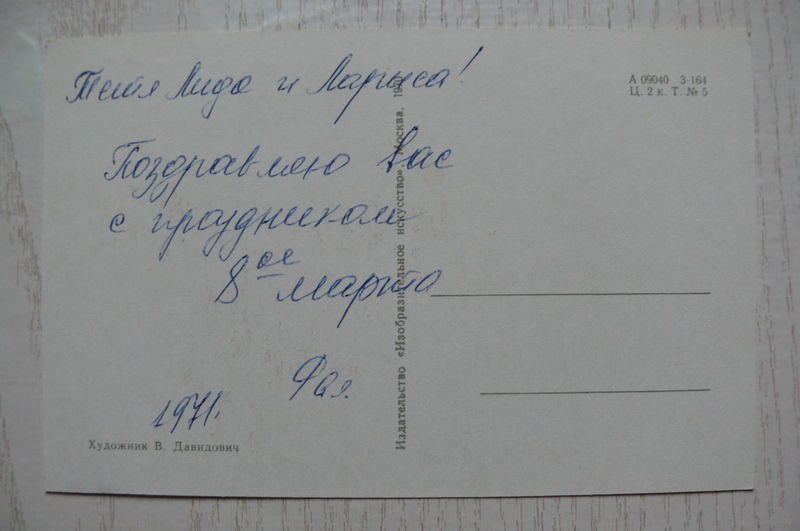 Тетя Лида и Лариса!
Поздравляю Вас
с праздником
8ое марта
Фая.
1971.
Художник В. Давидович
Издательство «Изобразительное искусство», Москва,
А 09040 3-164
Ц. 2 к. Т. № 5